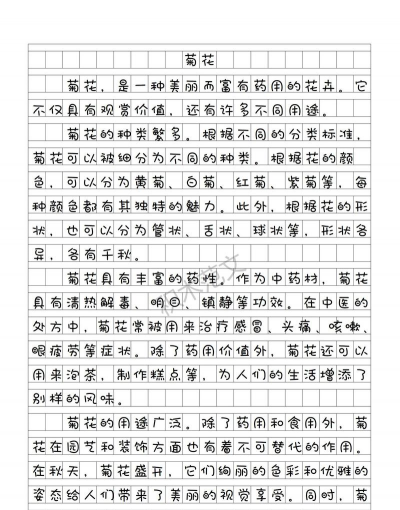 菊花
菊花，是一种美丽而富有药用的花卉。它
不仅具有观赏价值，还有许多不同用途。
菊花的种类繁多。根据不同的分类标准，
菊花可以被细分为不同的种类。根据花的颜
色，可以分为黄菊、白菊、红菊、紫菊等，每
种颜色都有其独特的魅力。此外，根据花的形
状，也可以分为管状、舌状、球状等，形状各
异，各有千秋。
菊花具有丰富的药性。作为中药材，菊花
具有清热解毒、明目、镇静等功效。在中医的
处方中，菊花常被用来治疗感冒、头痛、咳嗽、
眼疲劳等症状。除了药用价值外，菊花还可以
用来泡茶，制作糕点等，为人们的生活增添了
别样的风味。
菊花的用途广泛。除了药用和食用外，菊
花在园艺和装饰方面也有着不可替代的作用。
在秋天，菊花盛开，它们绚丽的色彩和优雅的
姿态给人们带来了美丽的视觉享受。同时，菊